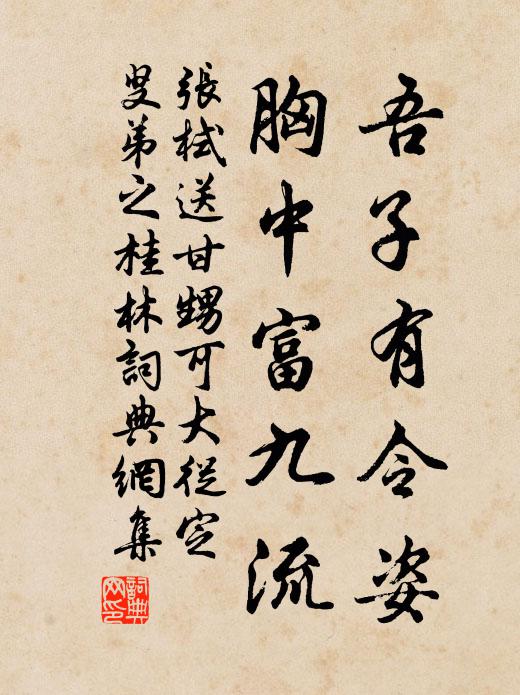 吾子有令姿
胸中富九流
張栻送甘甥可大從定
叟弟之桂林詞典網集
詞典网印